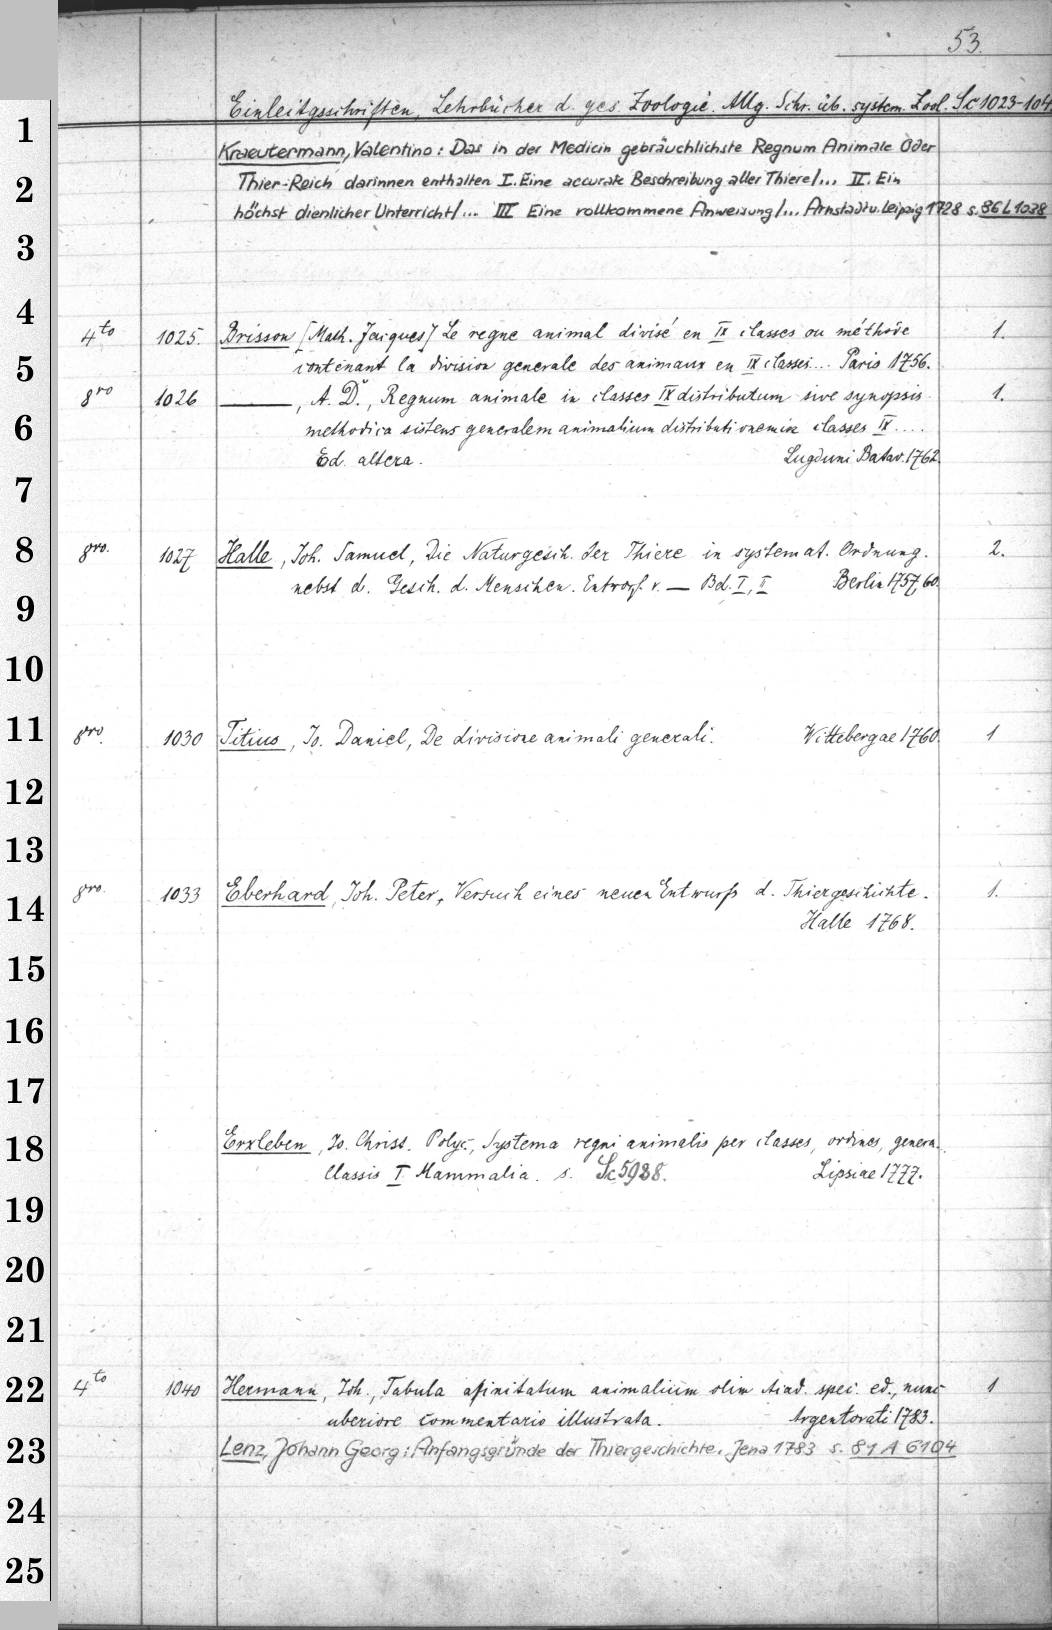 53.
Einleitgsschriften, Lehrbücher d. ges. Zoologie. Allg. Schr. üb. system. Zool. Sc 1023-104
1
Kraeutermann, Valentino: Das in der Medicin gebräuchlichste Regnum Animale Oder
2 Thier-Reich darinnen enthalten I. Eine accurate Beschreibung aller Thiere/... II. Ein
höchst dienlicher Unterricht/... III Eine vollkommene Anweisung/... Arnstadt u. Leipzig 1728 s. 86 L 1038
3
4
4to 1025. Brisson [Math. Jacques] Le regne animal divisé en IX classes ou méthode 1.
5 contenant la division generale des animaux en IX classes.... Paris 1756.
8ro 1026 ——, A. D., Regnum animale in classes IX distributum sive synopsis 1.
6 methodica sistens generalem animalium distributionem in classes IX ....
Ed. altera. Lugduni Batav. 1762.
7
8 8ro. 1027 Halle, Joh. Samuel, Die Naturgesch. der Thiere in systemat. Ordnung. 2.
nebst d. Gesch. d. Menschen. Entworf. v. — Bd. I, II Berlin 1757,60.
9
10
11 8ro. 1030 Titius, Jo. Daniel, De divisione animali generali. Wittebergae 1760. 1
12
13
14 8ro. 1033 Eberhard, Joh. Peter, Versuch eines neuen Entwurfs d. Thiergeschichte. 1.
Halle 1768.
15
16
17
18 Erxleben, Jo. Christ. Polyc., Systema regni animalis per classes, ordines, genera..
Classis I Mammalia. s. Sc 5938. Lipsiae 1777.
19
20
21
22 4to 1040 Hermann, Joh., Tabula afinitatum animalium olim Acad. spec. ed., nunc 1
uberiore commentario illustrata. Argentorati 1783.
23 Lenz, Johann Georg: Anfangsgründe der Thiergeschichte. Jena 1783 s. 81 A 6104
24
25